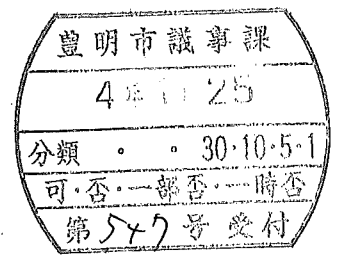 豊明市議事課
4 11 25
分類 ・ ・ 30・10・5・1
可・否・一部否・一時否
第547号受付